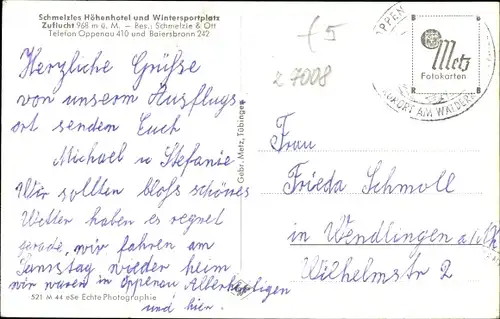 Schmelzles Höhenhotel und Wintersportplatz
Zuflucht 968 m ü. M. – Bes.: Schmelzle & Ott
Telefon Oppenau 410 und Baiersbronn 242
Herzliche Grüße
von unserem Ausflugs
ort senden Euch
Michael u Stefanie
Wir sollten bloß schönes
Wetter haben es regnet
gerade, wir fahren am
Samstag wieder heim
wir waren in Oppenau Allerheiligen
und hier.
521 M 44 eSe Echte Photographie
Gebr. Metz, Tübingen
£5
z 7008
OPPEN
Metz
Fotokarten
B B
R B
KURORT AM WALDE
Frau
Frieda Schmoll
in Wendlingen a/
Wilhelmstr 2